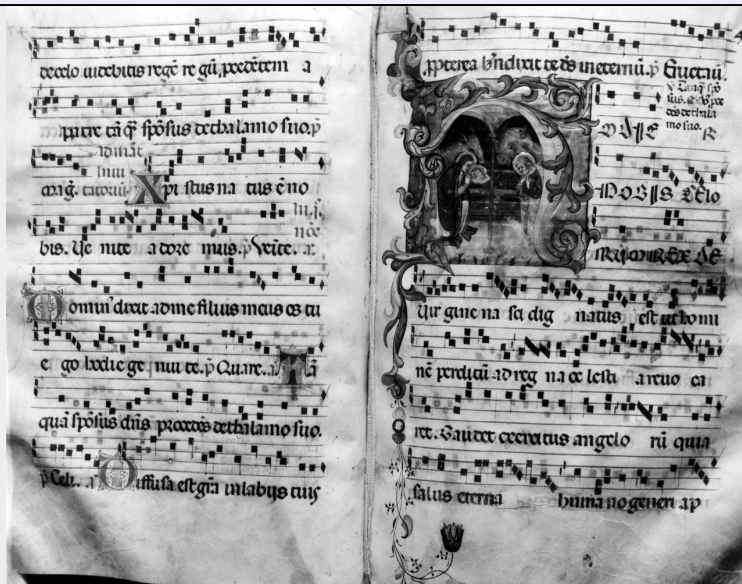 de celo videbitis regē re gū, procedētem a
patre tā q̄ spōsus de thalamo suo. p̄
Ad mat
inui
mag. tatoriū. Xpi stus na tus ē no
In p̊.
noc̄
bis. Ve nite a dore mus. p̄ Venite. a.
Dominꝰ dixit ad me filius meus es tu
e go hodie ge nui te. p̄ Quare. a. Tā
quā spōsus dn̄s procedēs de thalamo suo.
p̄ Celi. a. Diffusa est grā in labijs tuis
propterea bn̄dixit te ds̄ in eternū. p̄ Eructaū.
V. Tāqᵃ spō
sus. dn̄s pce
des de thala
mo suo. R
HODIE
NOBIS CELO
RUM REX DE
Vir gine na sci dig natus est ut homi
nē perditū ad reg na ce lesti a revo ca
ret. Gaudet exercitus angelo rū quia
salus eterna humano generi ap